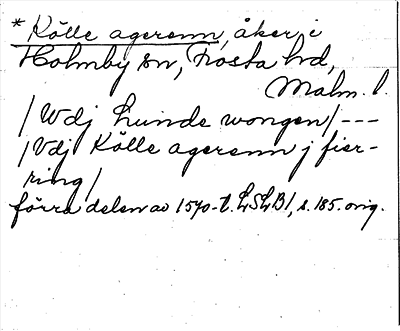 * Kölle agerenn, åker i
Holmby sn, Frosta hd,
Malm. l.
/Udj Lunde wongen/ ---
/Udj Kölle agerenn j fier-
ring/
förra delen av 1570-t. LSLB/, s. 185. orig.